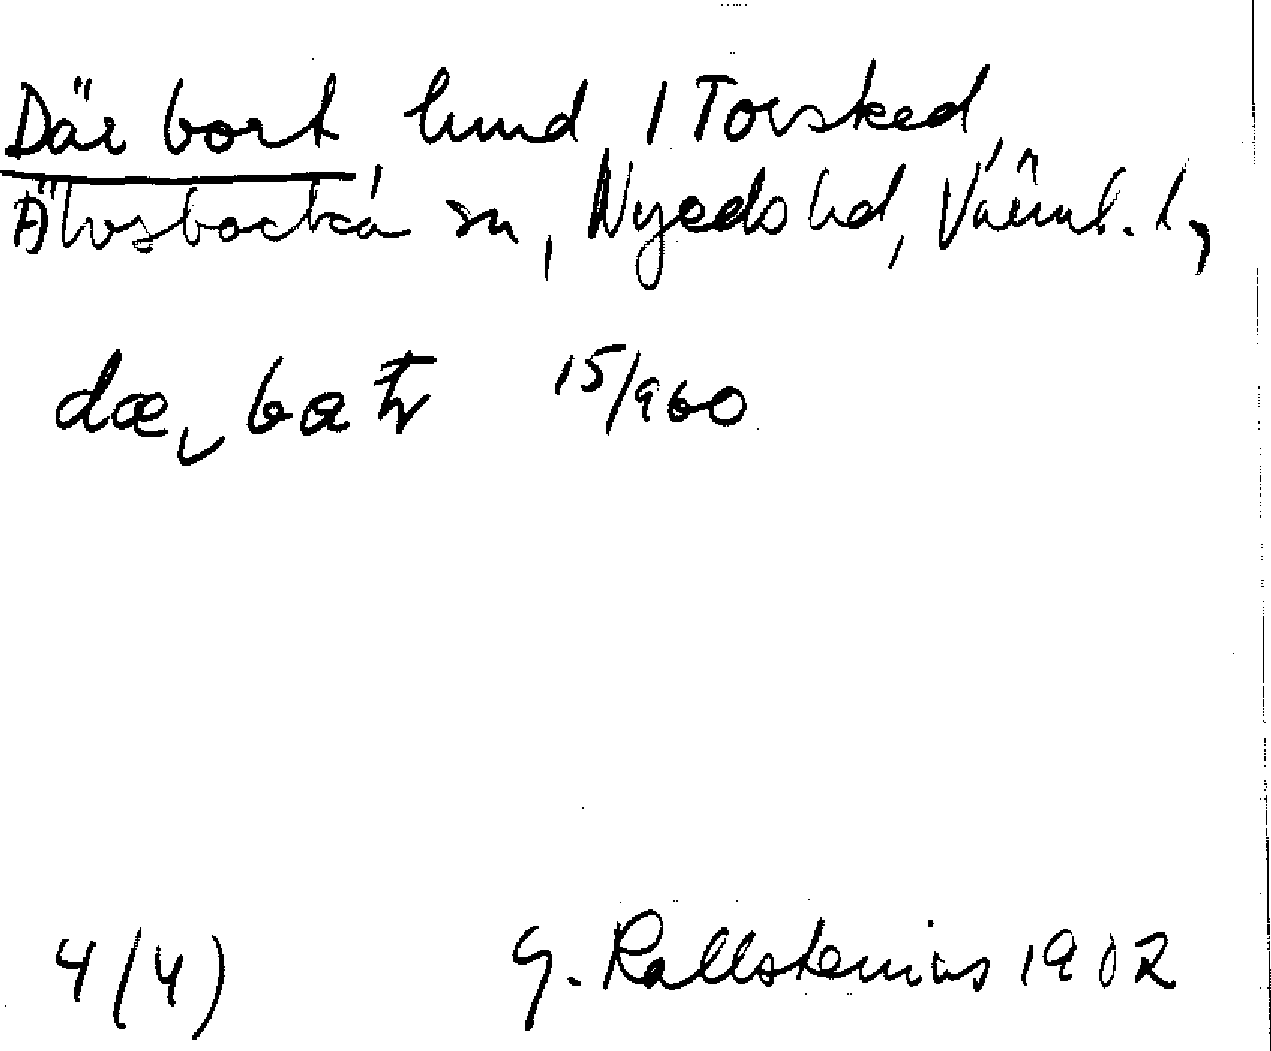 Där bort hund i Torsked,
Älvsbacka sn, Nyeds hd, Värml. l,
15/960
4 (4) G. Kallstenius 1902